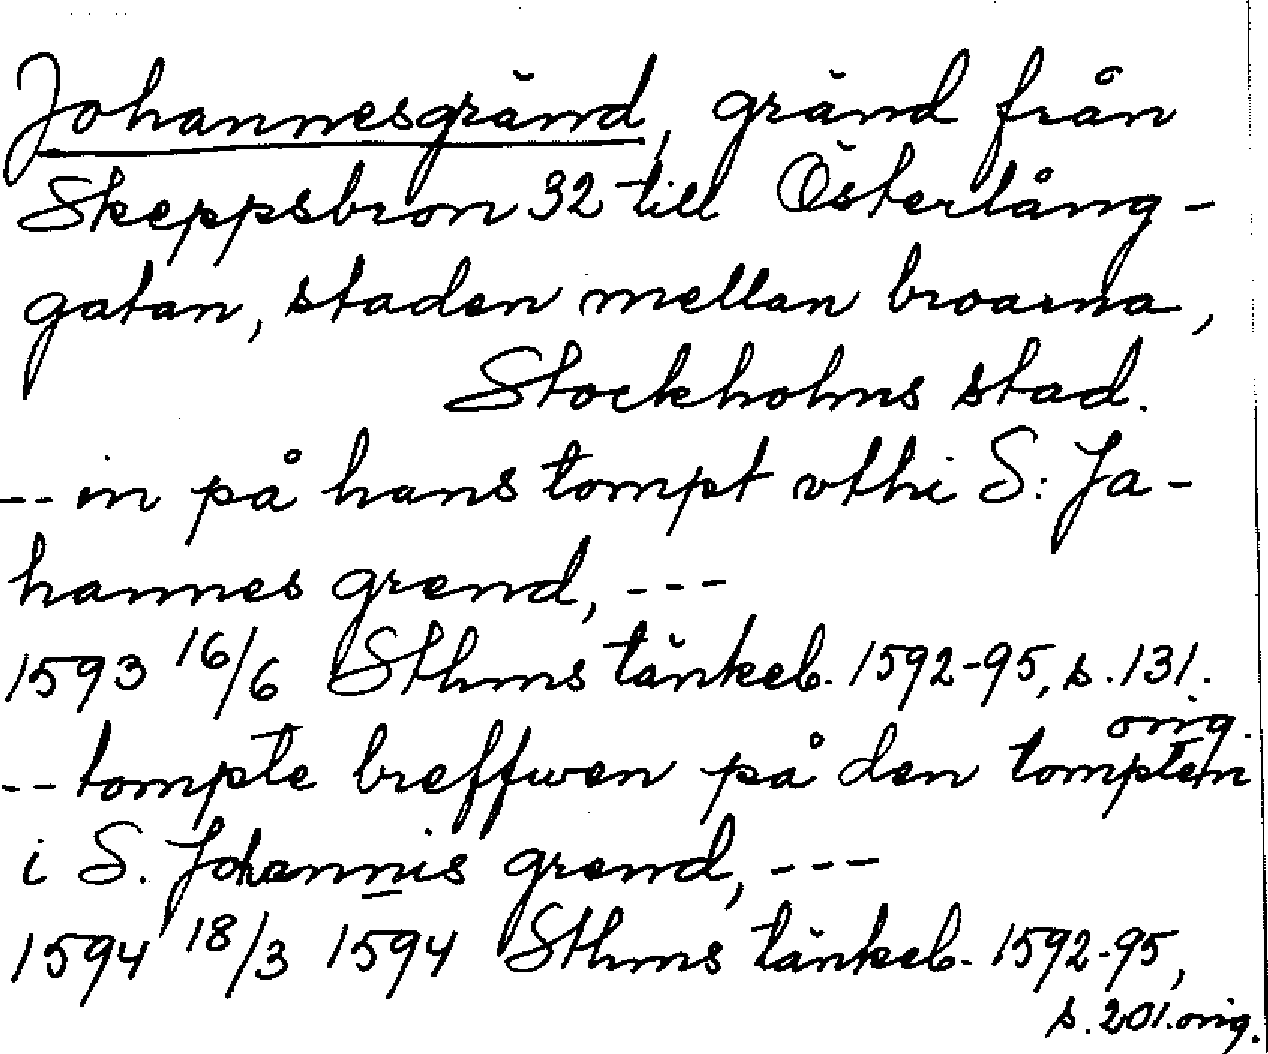 Johannesgränd, gränd från
Skeppsbron 32 till Österlång-
gatan, staden mellan broarna,
Stockholms stad.
-- in på hans tompt vthi S: Ja-
hannes grend, ---
1593 16/6 Sthms tänkeb. 1592-95, s. 131.
orig.
-- tompte breffwen på den tompten
i S. Johannis grend, ---
1594 18/3 1594 Sthms tänkeb. 1592-95,
s. 201. orig.